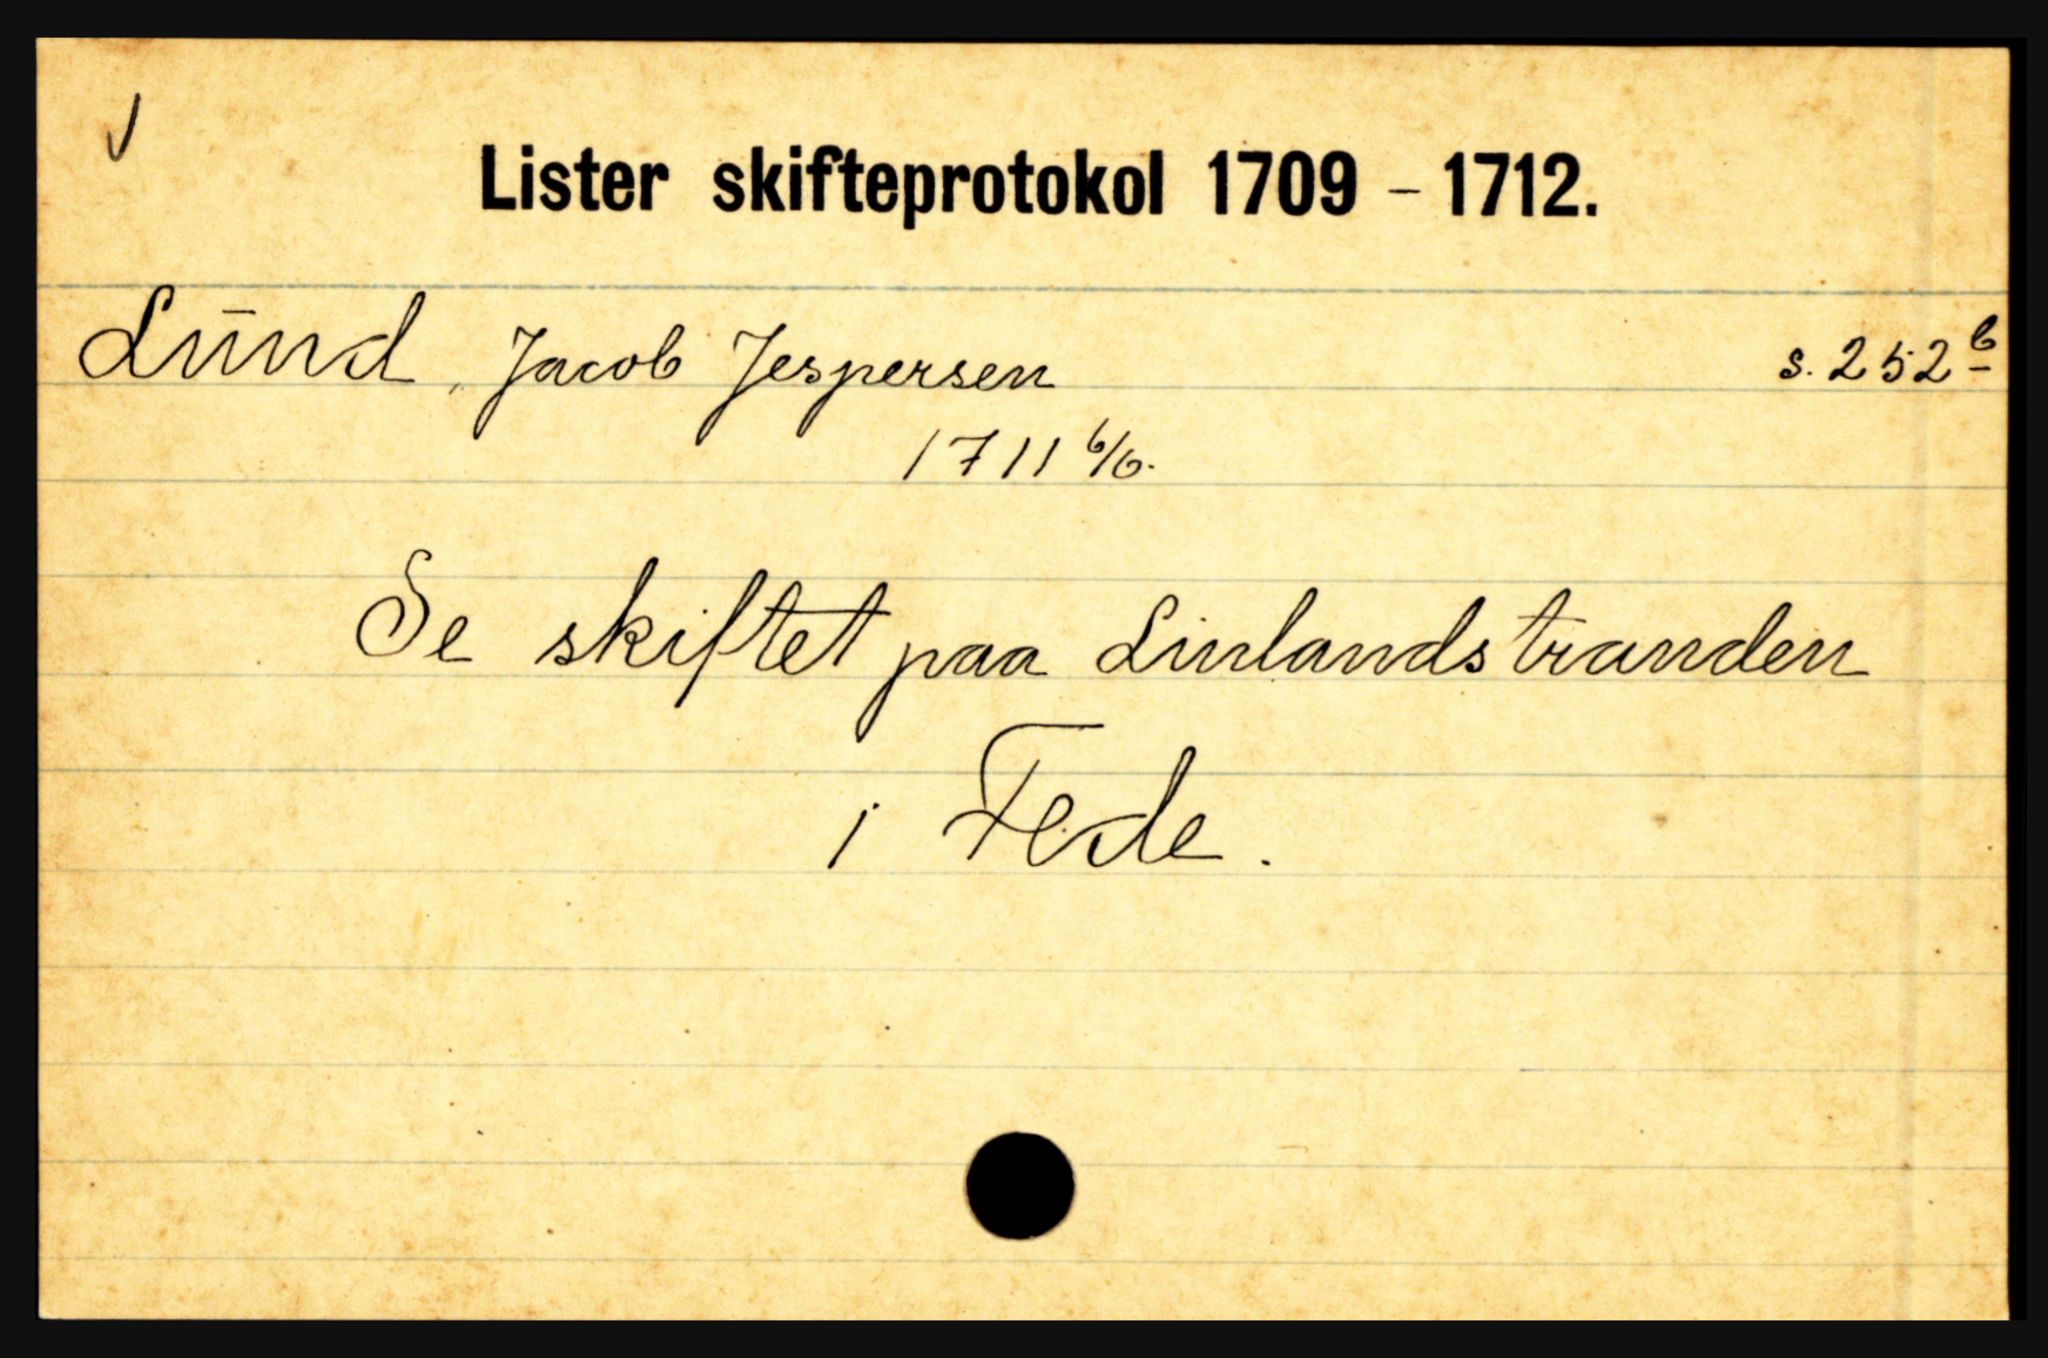 Lister skifteprotokol 1709 - 1712.
Lund, Jacob Jespersen s. 252 b
1711 6/6.
Se skiftet paa Linlandstranden
i Fede.